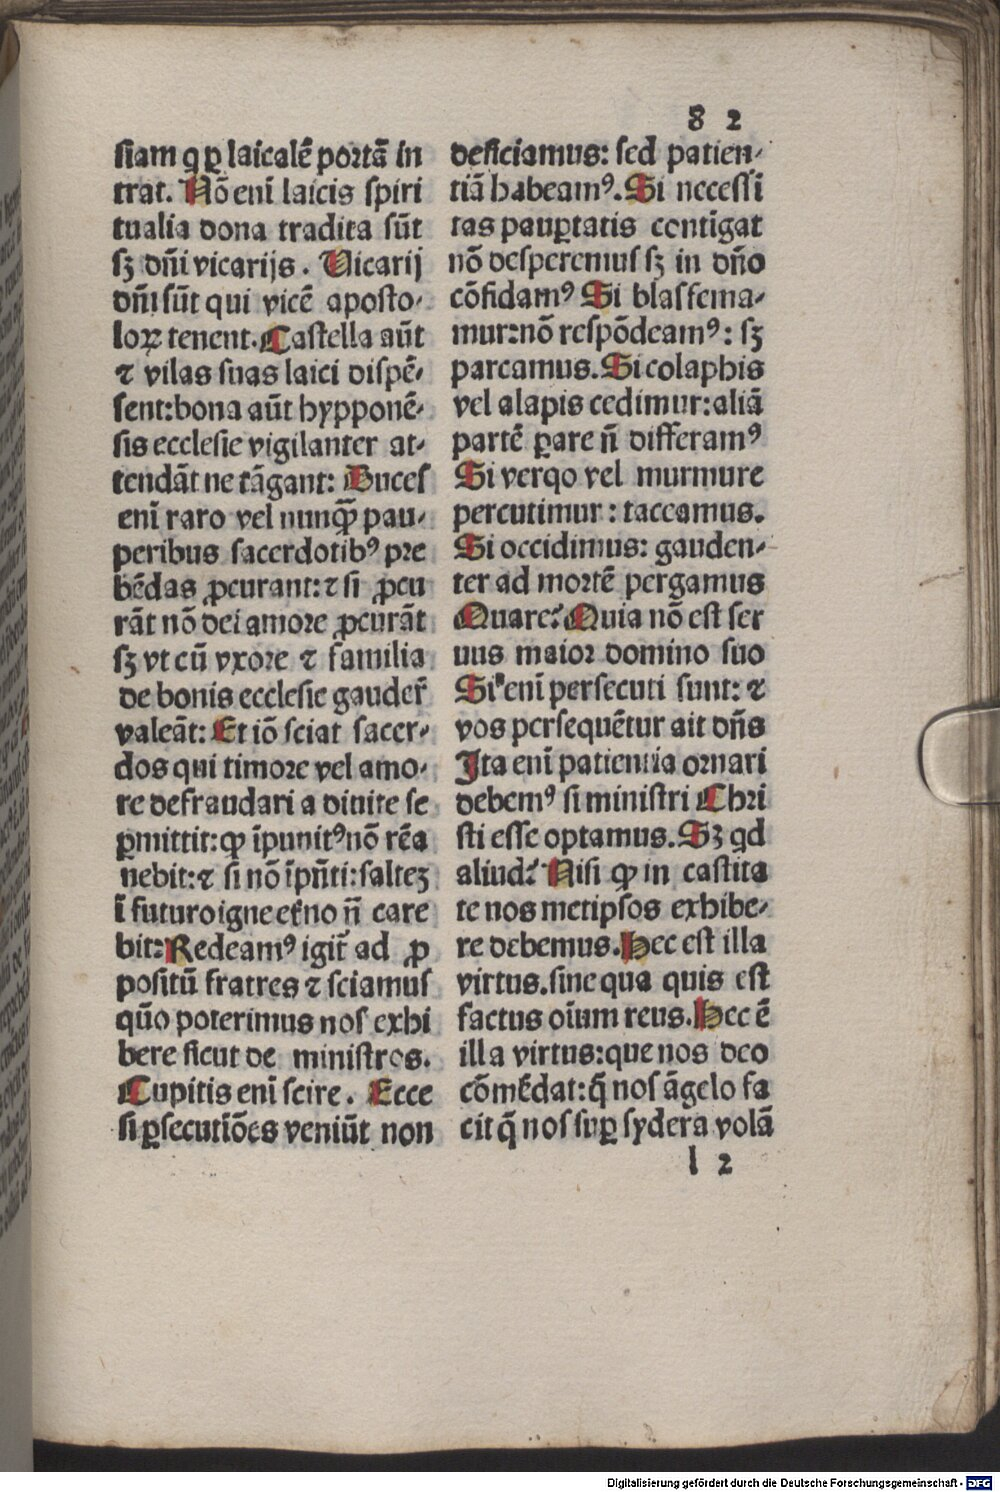 82
siam q ꝑ laicalē portā in
trat. Nō enī laicis spiri
tualia dona tradita sūt
sꝫ dn̄i vicarijs. Uicarij
dn̄i sūt qui vicē aposto-
loꝝ tenent. Castella aūt
⁊ vilas suas laici dispē-
sent: bona aūt hypponē-
sis ecclesie vigilanter at-
tendāt ne tāgant: Duces
enī raro vel nunqꝫ̄ pau-
peribus sacerdotibꝰ pre
bēdas ꝓcurant: ⁊ si ꝓcu
rāt nō dei amore ꝓcurāt
sꝫ vt cū vxore ⁊ familia
de bonis ecclesie gauder̄
valeāt: Et iō sciat sacer-
dos qui timore vel amo-
re defraudari a diuite se
ꝑmittit: ꝙ īpunitꝰ nō rēa
nebit: ⁊ si nō īpn̄ti: saltez
ī futuro igne et̄no n̄ care
bit: Redeamꝰ igit̄ ad ꝓ
positū fratres ⁊ sciamus
qūo poterimus nos exhi
bere sicut de ministros.
Cupitis enī scire. Ecce
si ꝑsecutiōes veniūt non
deficiamus: sed patien-
tiā habeamꝰ. Si necessi
tas pauꝑtatis contigat
nō desperemus sꝫ in dn̄o
cōfidamꝰ Si blasfema-
mur: nō respōdeamꝰ: sꝫ
parcamus. Si colaphis
vel alapis cedimur: aliā
partē ꝑare n̄ differamꝰ
Si verqo vel murmure
percutimur: taceamus.
Si occidimus: gauden-
ter ad mortē pergamus
Quare? Quia nō est ser
uus maior domino suo
Si enī persecuti sunt: ⁊
vos persequētur ait dn̄s
Ita enī patientia ornari
debemꝰ si ministri Chri
sti esse optamus. Sꝫ qd
aliud? Nisi ꝙ in castita
te nos metipsos exhibe-
re debemus. Hec est illa
virtus. sine qua quis est
factus oīum reus. Hec ē
illa virtus: que nos deo
cōmēdat: q̄ nos āgelo fa
cit q̄ nos suꝑ sydera volā
l 2
Digitalisierung gefördert durch die Deutsche Forschungsgemeinschaft - DFG